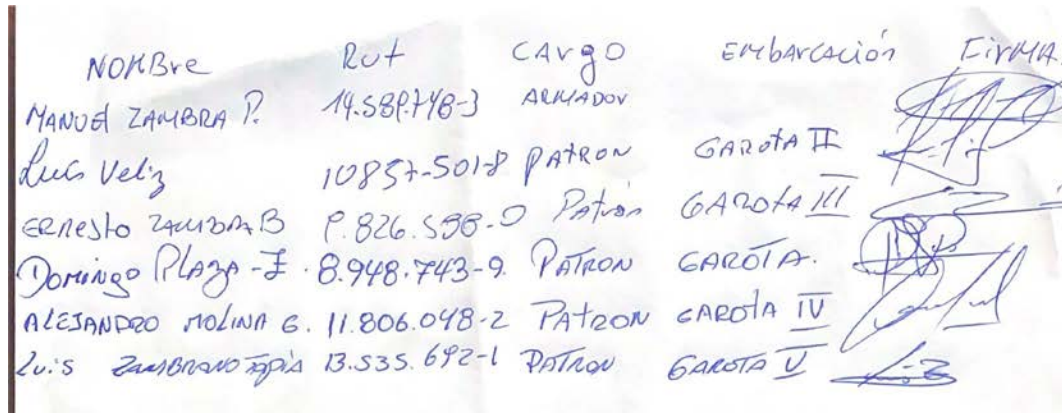 NOMBre Rut CArgO EMbArcAción FirMA
MANUEl ZAMBRA P. ARMADOr
Luis Veliz PATRON GAROTA II
ERNESTO ZAMBRA B Patrón GAROTA III
DOMINGO PLAZA - Z. 8.948.743-9. PATRON GAROTA.
ALEJANDRO MOLINA G. 11.806.048-2 PATRON GAROTA IV
Luis ZAMBRANO TAPIA 13.535.692-1 PATRON GAROTA V